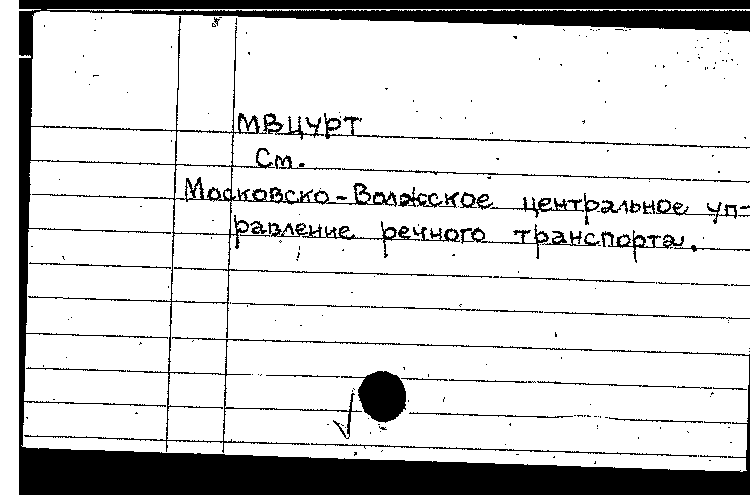 МВЦУРТ
См.
Московско-Волжское центральное уп-
равление речного транспорта.